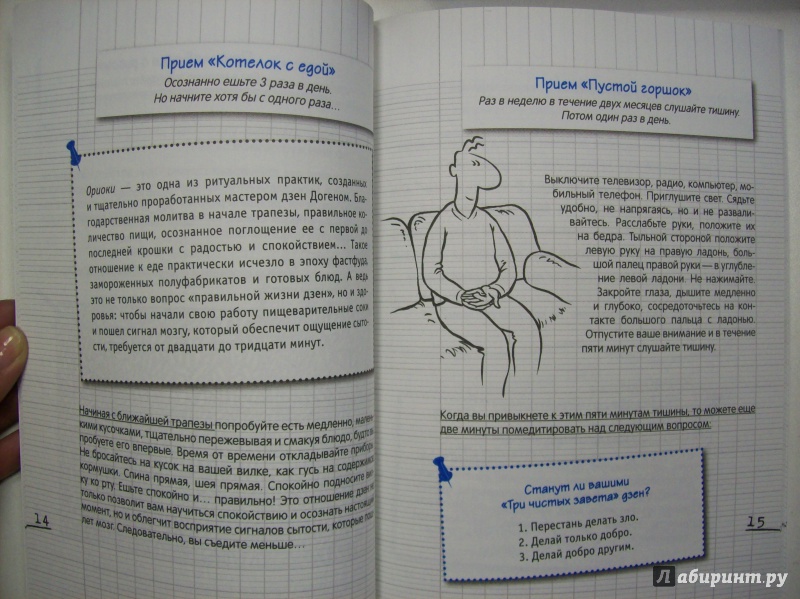 Прием «Котелок с едой»
Осознанно ешьте 3 раза в день.
Но начните хотя бы с одного раза...
Ориоки — это одна из ритуальных практик, созданных
и тщательно проработанных мастером дзен Догеном. Бла-
годарственная молитва в начале трапезы, правильное ко-
личество пищи, осознанное поглощение ее с первой до
последней крошки с радостью и спокойствием... Такое
отношение к еде практически исчезло в эпоху фастфуда,
замороженных полуфабрикатов и готовых блюд. А ведь
это не только вопрос «правильной жизни дзен», но и здо-
ровья: чтобы начали свою работу пищеварительные соки
и пошел сигнал мозгу, который обеспечит ощущение сыто-
сти, требуется от двадцати до тридцати минут.
Начиная с ближайшей трапезы попробуйте есть медленно, мален
кими кусочками, тщательно пережевывая и смакуя блюдо, будто
пробуете его впервые. Время от времени откладывайте прибор
Не бросайтесь на кусок на вашей вилке, как гусь на содержим
кормушки. Спина прямая, шея прямая. Спокойно подносите вил
ку ко рту. Ешьте спокойно и... правильно! Это отношение дзен н
только позволит вам научиться спокойствию и осознать настоящи
момент, но и облегчит восприятие сигналов сытости, которые пош
лет мозг. Следовательно, вы съедите меньше...
14
Прием «Пустой горшок»
Раз в неделю в течение двух месяцев слушайте тишину.
Потом один раз в день.
Выключите телевизор, радио, компьютер, мо-
бильный телефон. Приглушите свет. Сядьте
удобно, не напрягаясь, но и не развали-
вайтесь. Расслабьте руки, положите их
на бедра. Тыльной стороной положите
левую руку на правую ладонь, боль-
шой палец правой руки — в углубле-
ние левой ладони. Не нажимайте.
Закройте глаза, дышите медленно
и глубоко, сосредоточьтесь на кон-
такте большого пальца с ладонью.
Отпустите ваше внимание и в течение
пяти минут слушайте тишину.
Когда вы привыкнете к этим пяти минутам тишины, то можете еще
две минуты помедитировать над следующим вопросом:
Станут ли вашими
«Три чистых завета» дзен?
1. Перестань делать зло.
2. Делай только добро.
3. Делай добро другим.
15
Лабиринт.ру